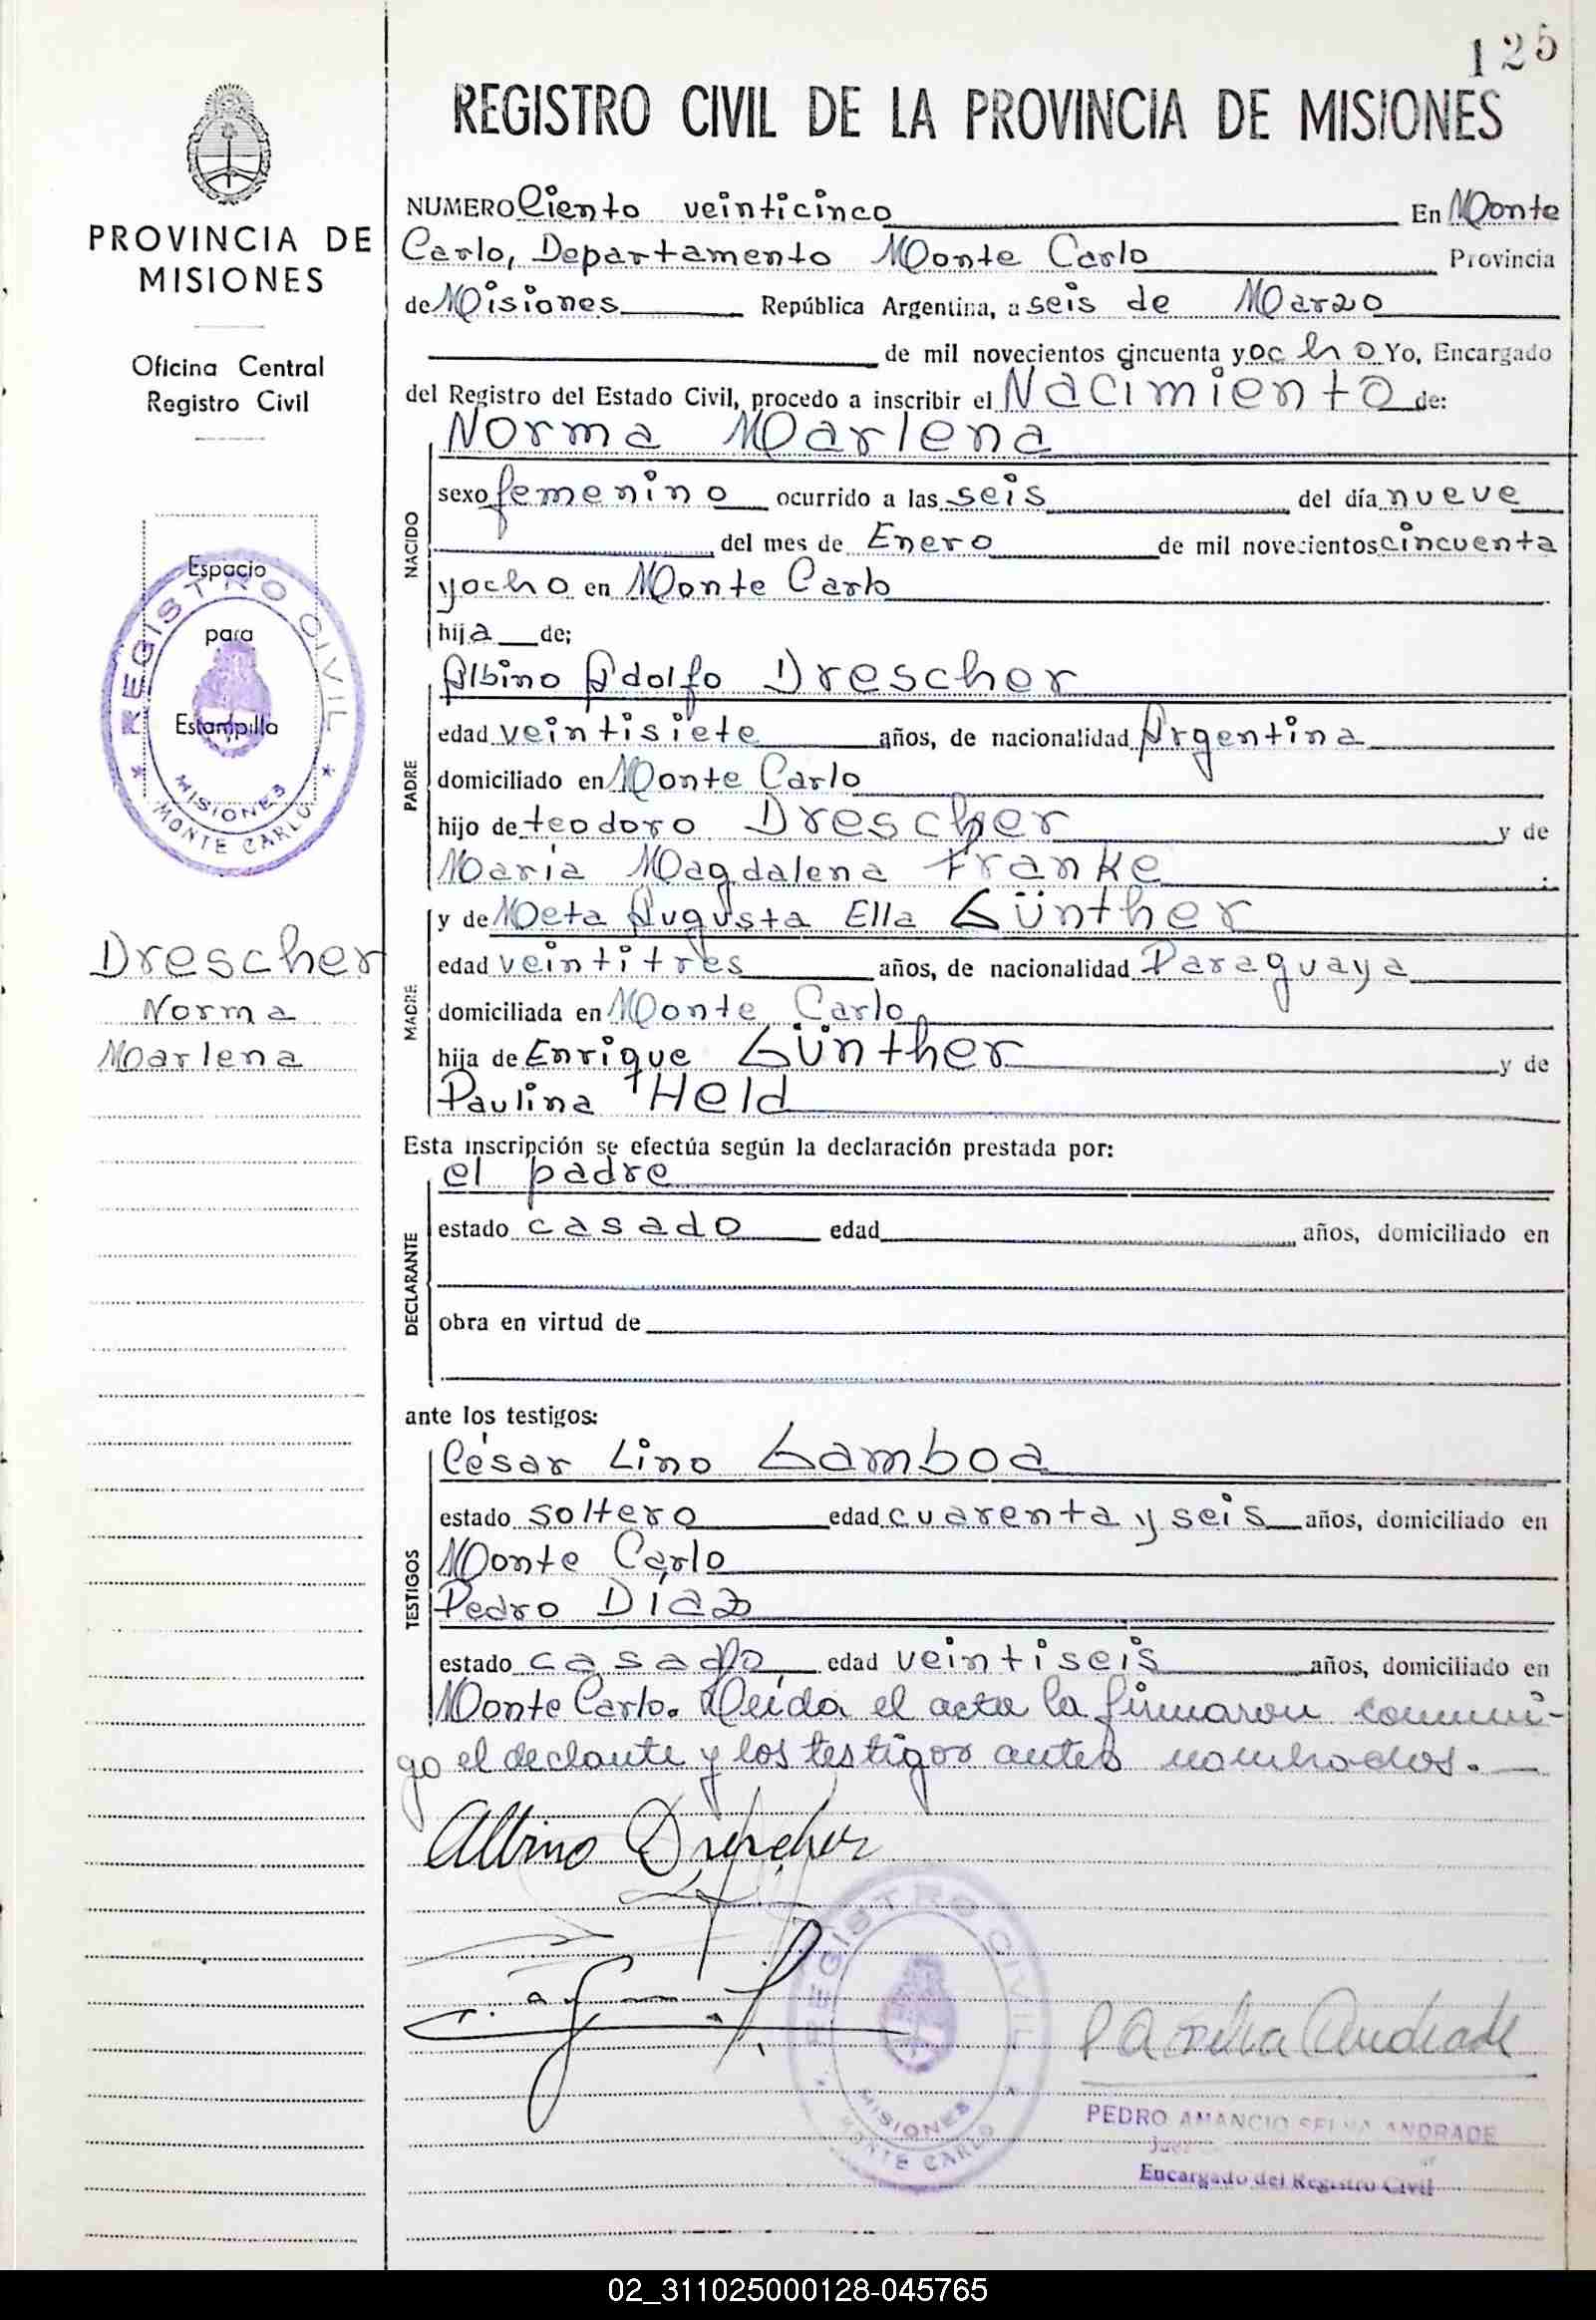 125
REGISTRO CIVIL DE LA PROVINCIA DE MISIONES
PROVINCIA DE
MISIONES
Oficina Central
Registro Civil
Espacio
para
Estampilla
REGISTRO CIVIL
MISIONES
MONTE CARLO
Drescher
Norma
Marlena
NUMERO Ciento veinticinco En Monte
Carlo, Departamento Monte Carlo Provincia
de Misiones República Argentina, a seis de Marzo
de mil novecientos cincuenta y ocho Yo, Encargado
del Registro del Estado Civil, procedo a inscribir el Nacimiento de:
NACIDO
Norma Marlena
sexo femenino ocurrido a las seis del día nueve
del mes de Enero de mil novecientos cincuenta
y ocho en Monte Carlo
hija de;
PADRE
Albino Adolfo Drescher
edad veintisiete años, de nacionalidad Argentina
domiciliado en Monte Carlo
hijo de teodoro Drescher y de
María Magdalena Franke
MADRE
y de Meta Augusta Ella Günther
edad veintitres años, de nacionalidad Paraguaya
domiciliada en Monte Carlo
hija de Enrique Günther y de
Paulina Held
Esta inscripción se efectúa según la declaración prestada por:
DECLARANTE
el padre
estado casado edad años, domiciliado en
obra en virtud de
ante los testigos:
TESTIGOS
César Lino Gamboa
estado soltero edad cuarenta y seis años, domiciliado en
Monte Carlo
Pedro Díaz
estado casado edad veintiseis años, domiciliado en
Monte Carlo. Leída el acta la firmaron conmi-
go el declante y los testigos antes nombrados.
Albino Drescher
REGISTRO CIVIL
MISIONES
MONTE CARLO
Andrade
PEDRO AMANCIO SELVA ANDRADE
Juez
Encargado del Registro Civil
02_311025000128-045765